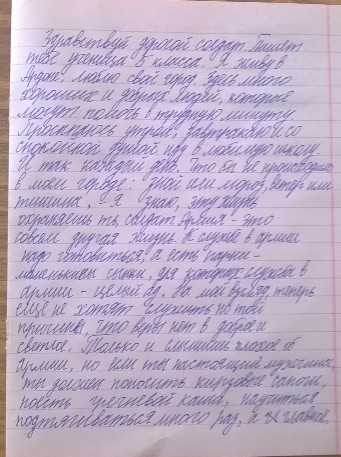 Здравствуй дорогой солдат. Пишет
тебе ученица 5 класса. Я живу в
люблю свой город здесь много
хороших и добрых людей, которые
могут помочь в трудную минуту
Просыпаюсь утром, завтракаю и со
спокойной душой иду в любимую школу
И так каждый день. Что бы не происходило
в моём городе: зной или мороз, ветер или
тишина, я знаю, эту жизнь
охраняешь ты, солдат. Армия - это
совсем другая жизнь. К службе в армии
надо готовиться, а есть парни -
маменькины сынки, для которых служба в
армии - целый ад. На мой взгляд, теперь
ещё не хотят служить по той
причине, что веры нет в доброе и
светлое. Только и слышишь плохое об
армии, но если ты настоящий мужчина,
ты должен поносить кирзовые сапоги,
поесть гречневой каши, научиться
подтягиваться много раз, а главное,